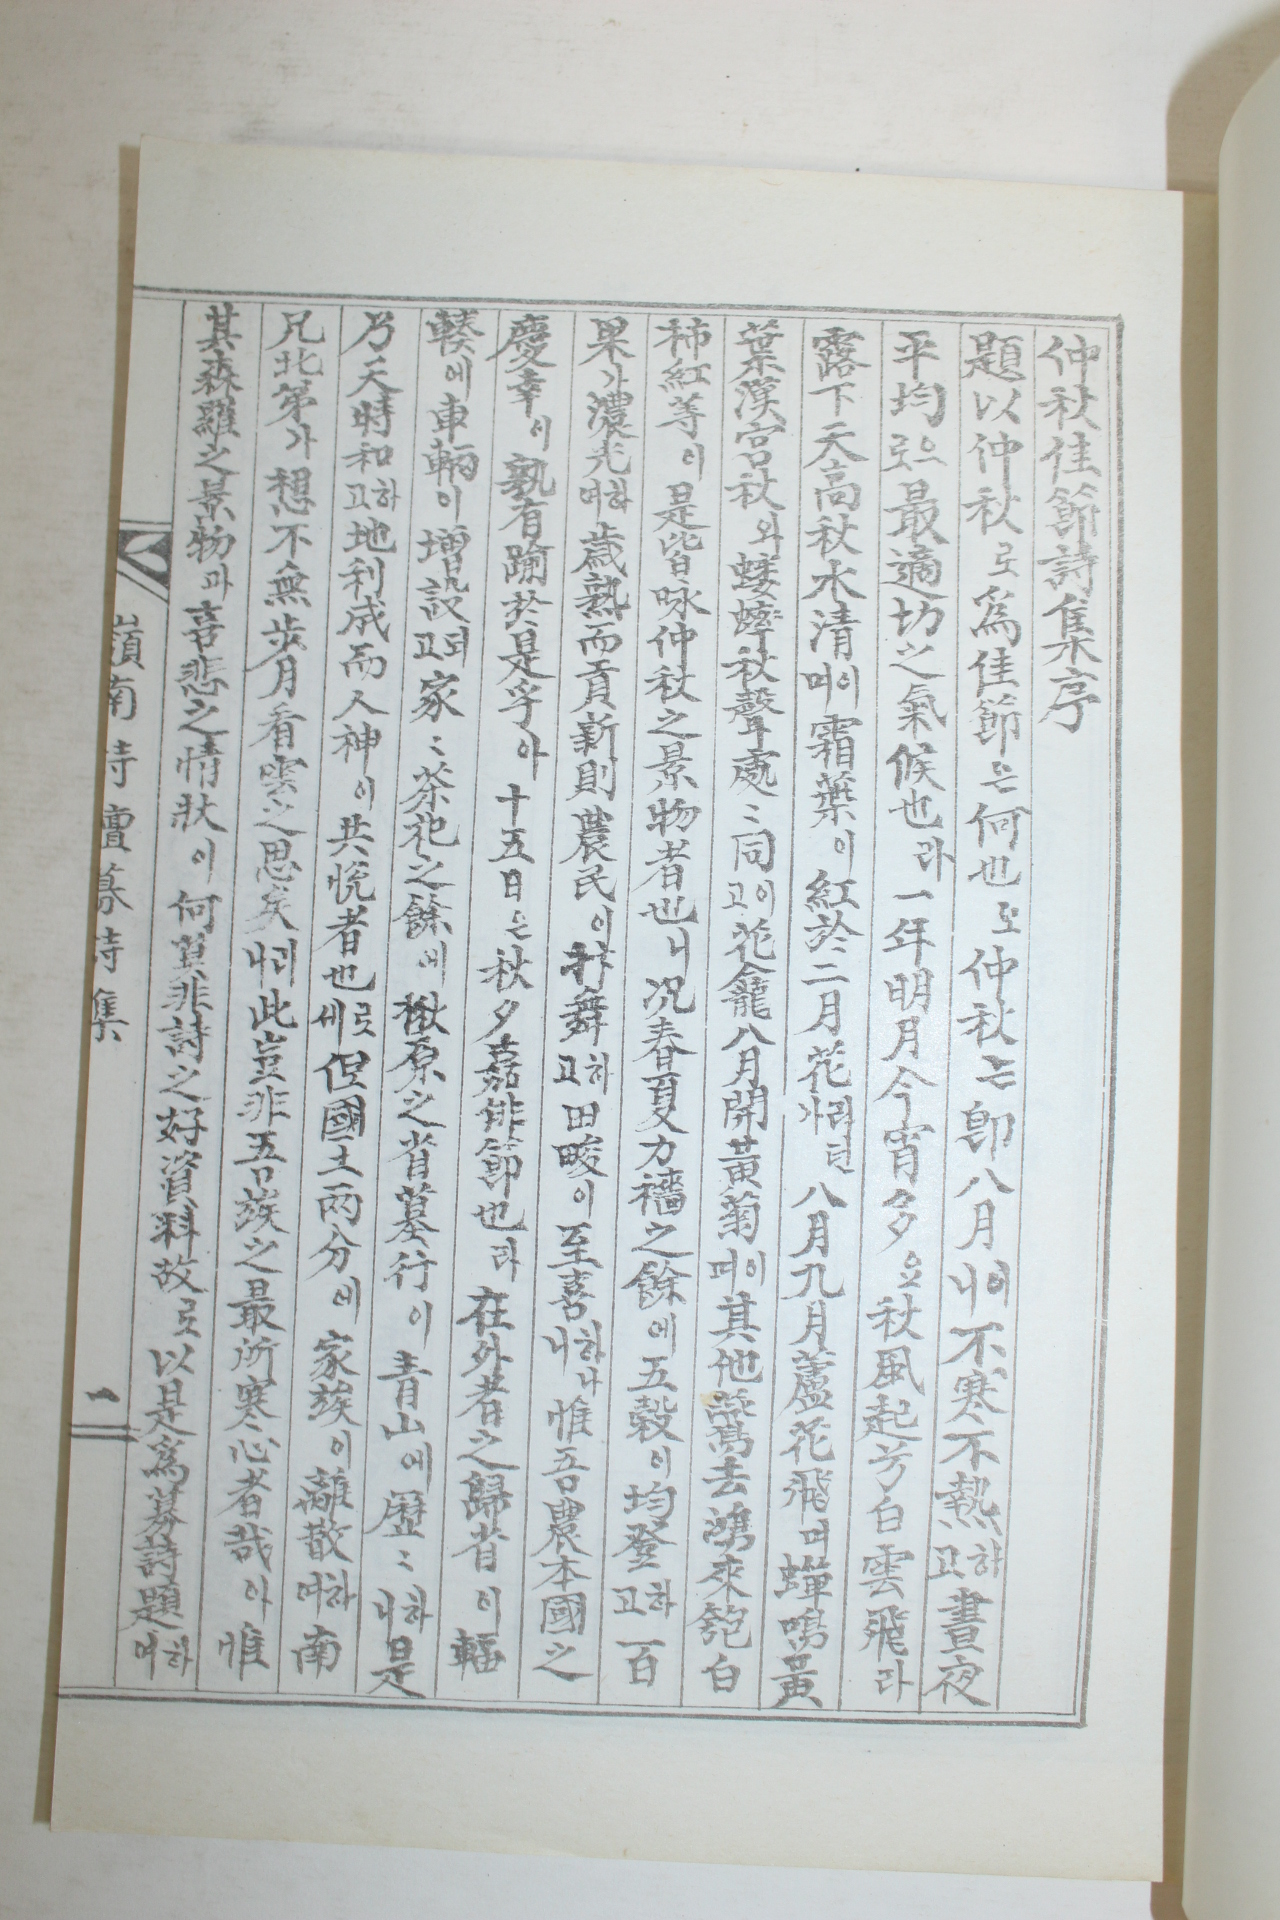 仲秋佳節詩集序
題以仲秋로爲佳節은何也오仲秋는卽八月이니不寒不熱하고晝夜
平均으로最適切之氣候也라一年明月今宵多요秋風起兮白雲飛라
露下天高秋水淸이며霜葉이紅於二月花라가八月九月蘆花飛며蟬鳴黃
葉漢宮秋와蟋蟀秋聲處〻同이고花龕八月開黃菊이며其他鶯去鴻來匏白
柿紅等이是皆咏仲秋之景物者也니况春夏力穡之餘에五穀이均登하고百
果가濃光하며歲熟而貢新則農民이抃舞하고田畯이至喜하나니惟吾農本國之
慶幸이孰有踰於是乎아十五日은秋夕嘉俳節也라在外者之歸省이輻
輳에車輛이增設되고家〻茶祀之餘에楸原之省墓行이靑山에歷〻하니是
乃天時和하고地利成而人神이共悅者也로세但國土兩分에家族이離散하며南
兄北弟가想不無步月看雲之思矣리니此豈非吾族之最所寒心者哉아惟
其森羅之景物과喜悲之情狀이何莫非詩之好資料故로以是爲募詩題하며
嶺南詩壇募詩集
一